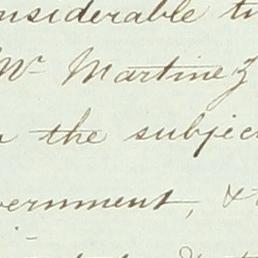 nsiderable ti
Mr Martinez
n the subjec
vernment, &